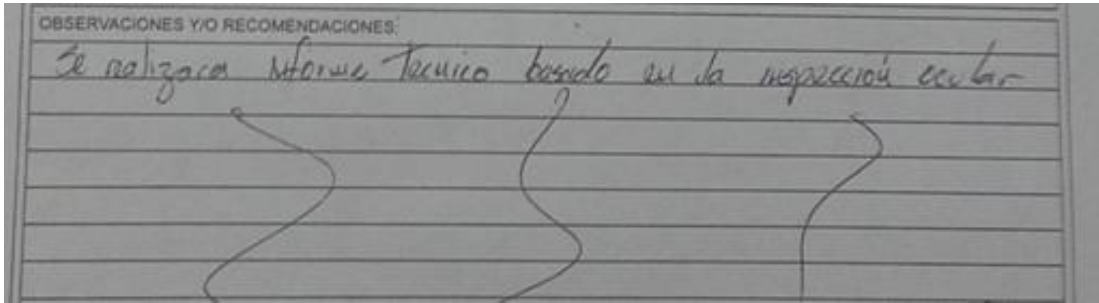 OBSERVACIONES Y/O RECOMENDACIONES:
Se realizara Informe Tecnico basado en la inspección ocular